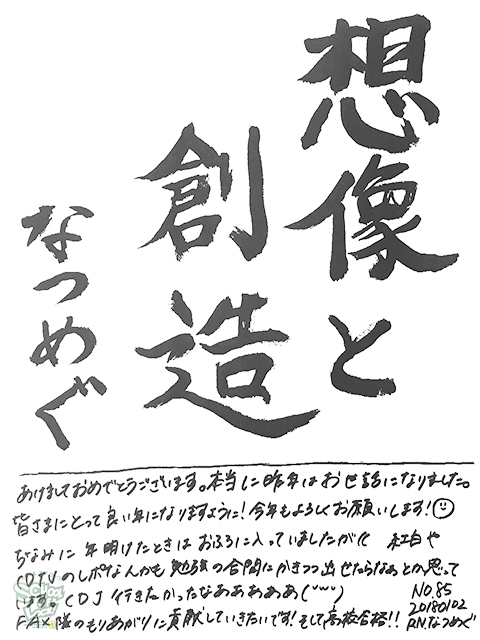 想像と
創造
なつめぐ
あけましておめでとうございます。本当に昨年はお世話になりました。
皆さまにとって良い年になりますように!今年もよろしくお願いします!
ちなみに年明けたときはおふろに入っていましたが 紅白や
CDTVのレポなんかも勉強の合間にかきつつ出せたらなぁとか思って
います。CDJ行きたかったなあああああ
FAX隊のもりあがりに貢献していきたいです!そして高校合格!!
NO.85
20180102
RN.なつめぐ